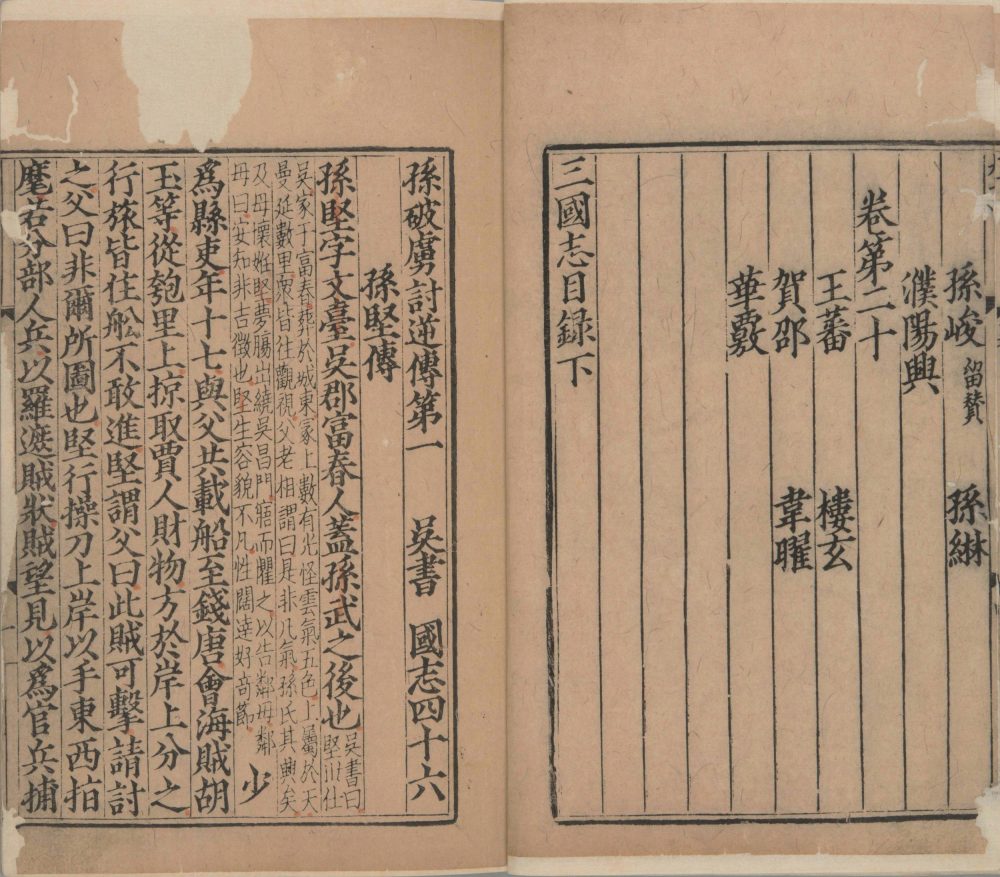 孫峻 留贊 孫綝
濮陽興
卷第二十
王蕃 樓玄
賀邵 韋曜
華覈
三國志目録下
孫破虜討逆傳第一 吳書 國志四十六
孫堅傳
孫堅字文臺吳郡富春人蓋孫武之後也
吳書曰
堅丗仕
吳家于富春葬於城東冢上數有光怪雲氣五色上屬於天
曼延數里衆皆往觀視父老相謂曰是非凡氣孫氏其興矣
及母懷姙堅夢腸出繞吳昌門寤而懼之以告鄰母鄰
母曰安知非吉徵也堅生容貌不凡性闊達好奇節
少
爲縣吏年十七與父共載船至錢唐會海賊胡
玉等從匏里上掠取賈人財物方於岸上分之
行旅皆住舩不敢進堅謂父曰此賊可擊請討
之父曰非爾所圖也堅行操刀上岸以手東西指
麾若分部人兵以羅遮賊狀賊望見以爲官兵捕